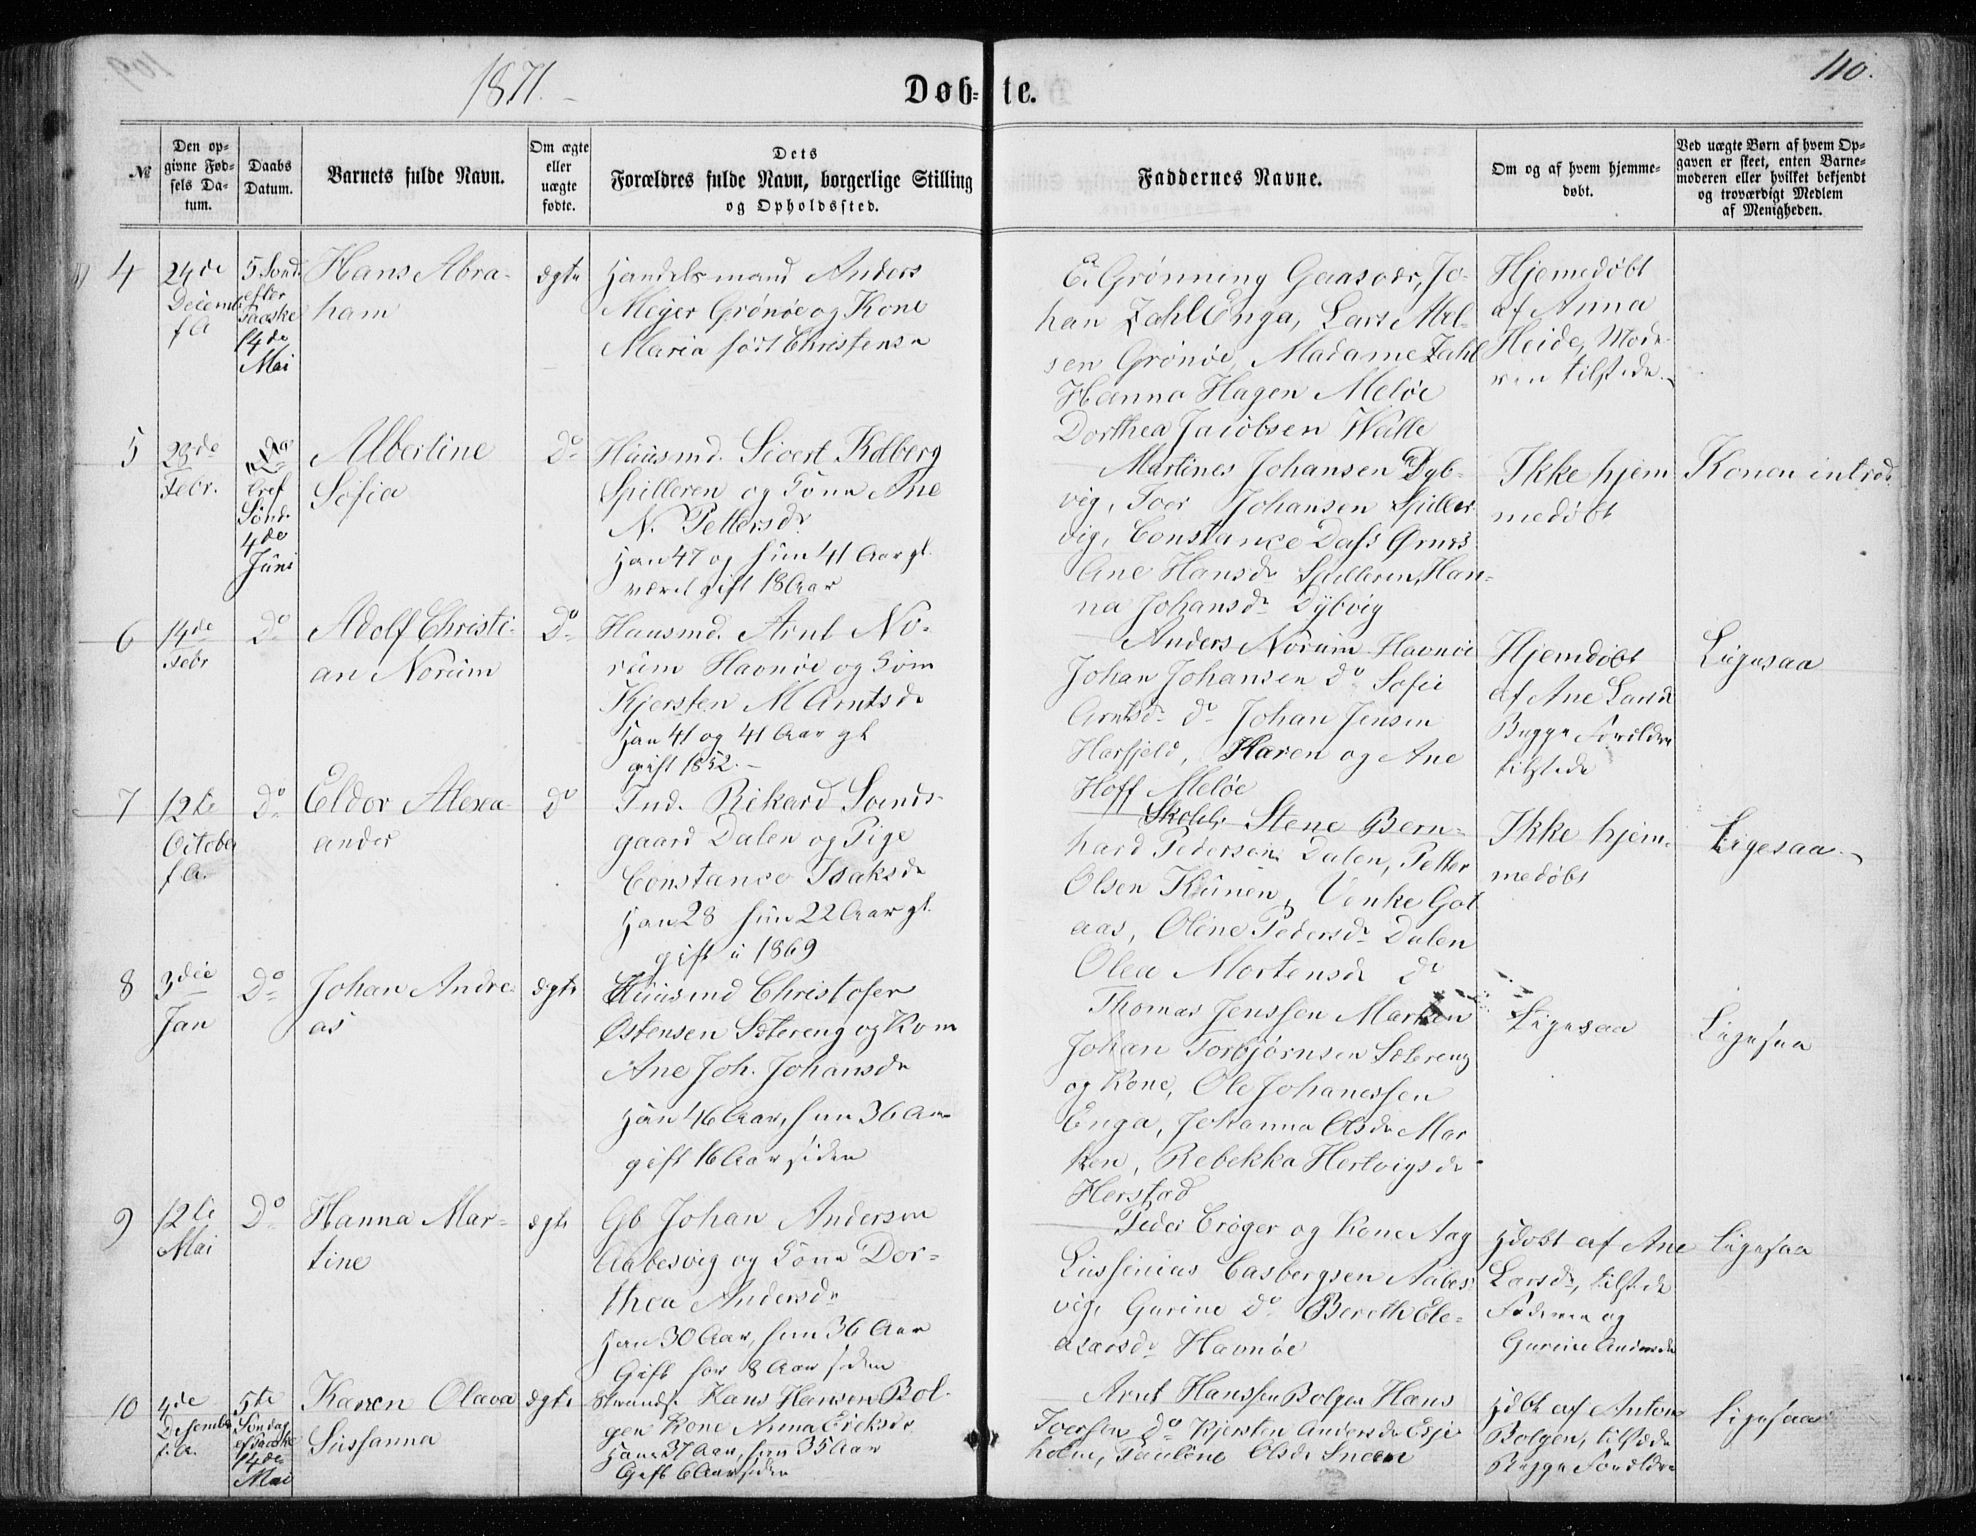 1871.
Døb-te.
110.
№
Den op-
givne Fød-
sels Da-
tum.
Daabs
Datum.
Barnets fulde Navn.
Om ægte
eller
uægte
fødte.
Dets
Forældres fulde Navn, borgerlige Stilling
og Opholdssted.
Faddernes Navne.
Om og af hvem hjemme-
døbt.
Ved uægte Børn af hvem Op-
gaven er skeet, enten Barne-
moderen eller hvilket bekjendt
og troværdigt Medlem
af Menigheden.
4
24de
Decemb
f A
5 Sond.
efter
Paaske
14de
Mai
Hans Abra-
ham
ægte
Handelsmand Anders
Meyer Grønøe og Kone
Maria født Christensen
E. Grønning Gaasvær, Jo-
han Zahl Enga, Lars Abel-
sen Grønøe, Madame Zahl
Hanna Hagen Meløe
Dorthea Jacobsen Walle
Hjemedøbt
af Anna
Heide, Mode-
ren tilstede
5
28de
Febr.
Tref
Sønd.
4de
Juni
Albertine
Sofia
Do
Huusmd. Sivert Kdberg
Spilderen og Kone Ane
N. Pettersdr
Han 47 og hun 41 Aar gl.
været gift 18 Aar
Martines Johansen Dyb-
vig, Toer Johansen Spilder
vig, Constance Dass Ørnes
Ane Hansdr Spilderen, Han-
na Johansdr Dybvig
Ikke hjem
medøbt
Konen introd.
6
14de
Febr
Do
Adolf Christi-
an Norum
Do
Huusmd. Arnt No-
rum Havnøe og Kone
Kjersten M Arntsdr
Han 41 og 41 Aar gl
gift 1852.
Anders Norum Havnøe
Johan Johansen Do Sofie
Arntsdr Do Johan Jensen
Harfjeld, Karen og Ane
Hoff Meløe
Hjemdøbt
af Ane Larsdr
Begge Forældre
tilstede
Ligesaa
7
12te
October
f A.
Do
Eldor Alexa-
ander
Do
Ind. Rikard Sands-
gaard Dalen og Pige
Constance Isaksdr
Han 28 hun 22 Aar gl.
gift i 1869
Skolel. Stene Bern-
hard Pedersen Dalen, Petter
Olsen Kunen, Venke Got
aas, Oline Pedersdr Dalen
Olea Mortensdr Do
Ikke hjem-
medøbt
Ligesaa
8
3die
Jan
Do
Johan Andre-
as
ægte
Huusmd Christofer
Østensen Sætereng og Kone
Ane Joh. Johansdr
Han 46 Aar, hun 36 Aar
gift 16 Aar siden
Thomas Jenssen Marken
Johan Torbjørnsen Sætereng
og Kone, Ole Johanessen
Enga, Johanna Olsdr Mar
ken, Rebekka Hertvigsdr
Herstad
Ligesaa
Ligesaa
9
12te
Mai
Do
Hanna Mar-
tine
ægte
Gb Johan Andersen
Aabesvig og Kone Dor-
thea Andersdr
Han 30 Aar, hun 36 Aar
Gift for 8 Aar siden
Peder Crøger og Kone Aag
Lussinius Casbergsen Aabes-
vig, Gurine Do Bereth Ele-
asarsdr Havnøe
Hdøbt af Ane
Larsdr, tilstede
Faderen og
Gurine Andersdr
Ligesaa
10
4de
Desembr
f. A.
5te
Søndag
ef Paaske
14de
Mai
Karen Olava
Susanna
ægte
Strands. Hans Hansen Bol-
gen Kone Anna Eriksdr
Han 37 Aar, hun 35 Aar
Gift 6 Aar siden
Arnt Hanssen Bolgen Hans
Toersen Do Kjersten Andersdr Esje
holm, Pauline Olsdr Sneen
Hdøbt af Anton
Bolgen, tilstede
Begge Forældre
Ligesaa